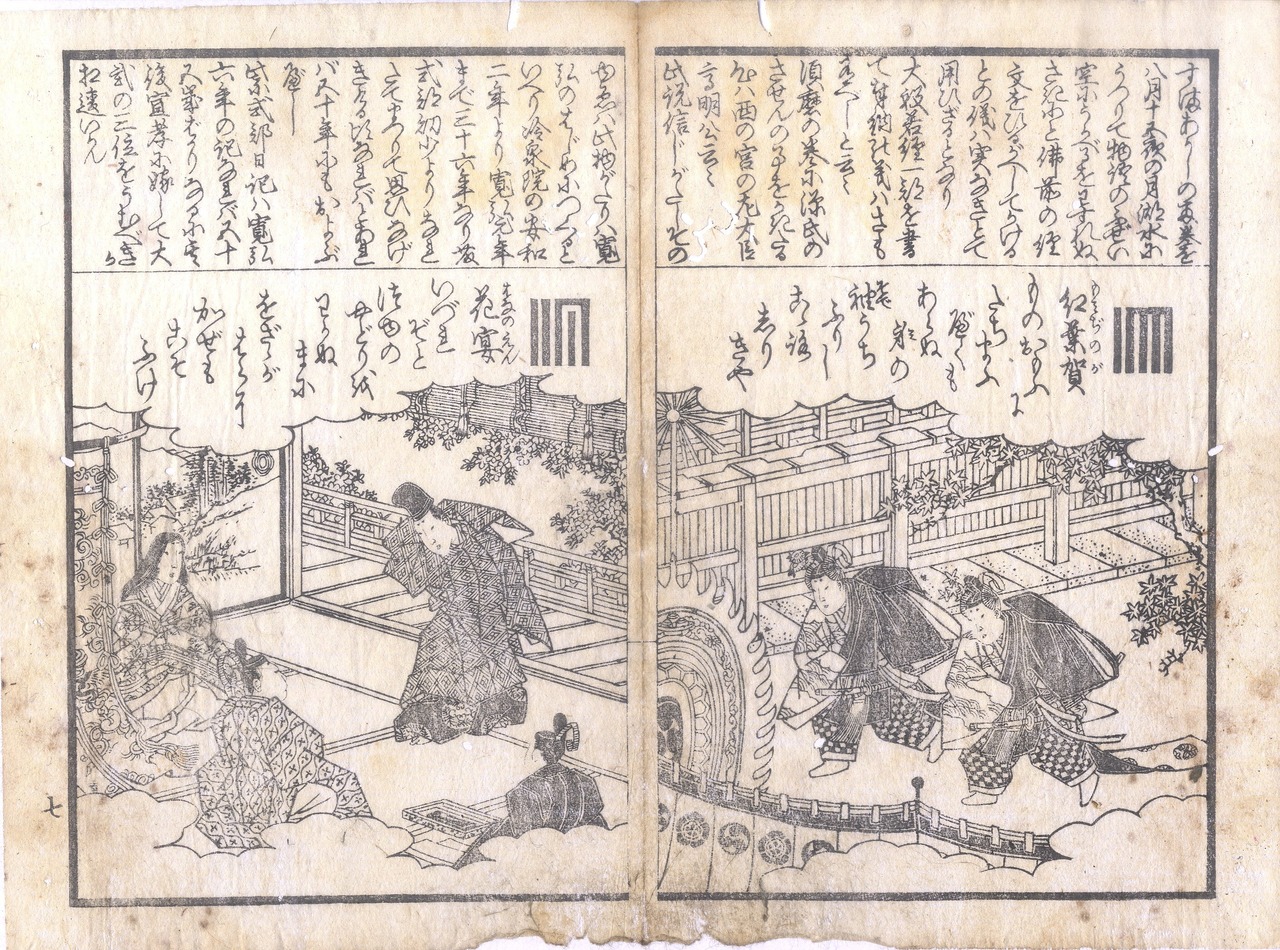 すまあかしの両巻を
八月十五夜の月湖水に
うつりて物語の風せい
空にうかぶをわすれぬ
さきにと佛前の経
文をひるがへしてかける
との儀ハ実なきとて
用ひざるとなり
大般若経一部を書
て奉納せし義ハさも
有べしと云々
須磨の巻に源氏の
させんの事をかきたる
ハ西の宮の左大臣
高明公云々
此説信じがたしその
紅葉賀
もみぢのが
ものおもふに
たちまふ
べくも
あらぬ
身の
袖うち
そで
ふりし
こゝろ
しり
きや
ゆゑハ此物がたりハ寛
弘のはじめにつくると
いへり冷泉院の安和
二年より寛弘元年
まで三十六年なり紫
式部幼少よりなれ
たてまつりて思ひなげ
きける頃なれバとあれ
バ五十年にもおよぶ
べし
紫式部日記ハ寛弘
六年の記なれバ五十
ばかりなるに
後宣孝に嫁して大
弐の三位をうむべきか
相違いかん
花宴
はなのえん
いづれ
ぞと
露の
やどりを
わかぬ
まに
をざゝが
はらに
かぜも
こそ
ふけ
七